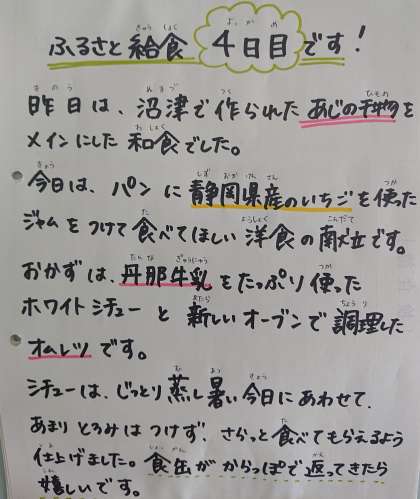 ふるさと給食 4日目です!
昨日は、沼津で作られたあじの干物を
メインにした和食でした。
今日は、パンに静岡県産のいちごを使った
ジャムをつけて食べてほしい洋食の献立です。
おかずは、丹那牛乳をたっぷり使った
ホワイトシチューと新しいオーブンで調理した
オムレツです。
シチューは、じっとり蒸し暑い今日にあわせて、
あまりとろみはつけず、さらっと食べてもらえるよう
仕上げました。食缶がからっぽで返ってきたら
嬉しいです。